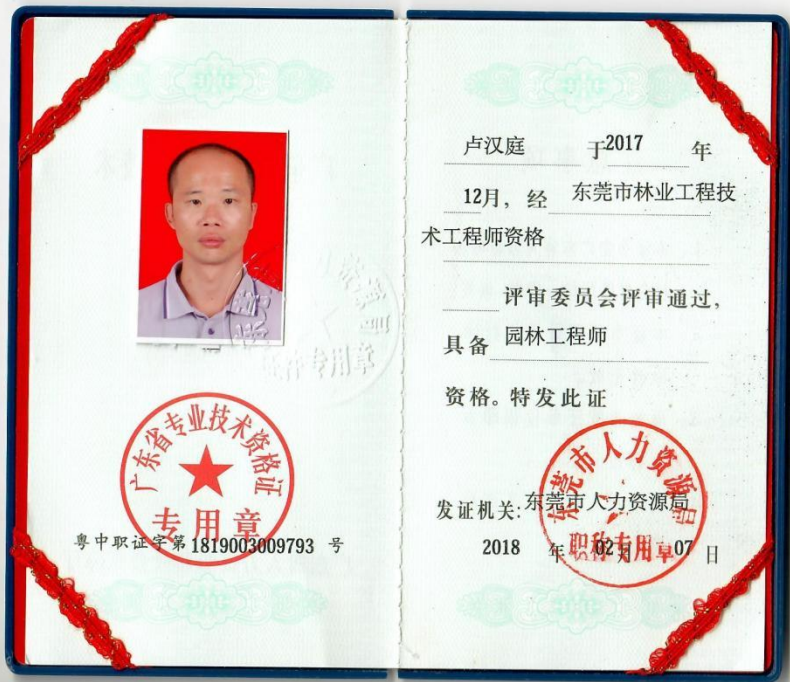 广东省专业技术资格证
专用章
粤中职证字第1819003009793号
卢汉庭 于2017 年
12月，经 东莞市林业工程技
术工程师资格
评审委员会评审通过，
具备 园林工程师
资格。特发此证
东莞市人力资源局
职称专用章
发证机关:东莞市人力资源局
2018 年 02月 07日